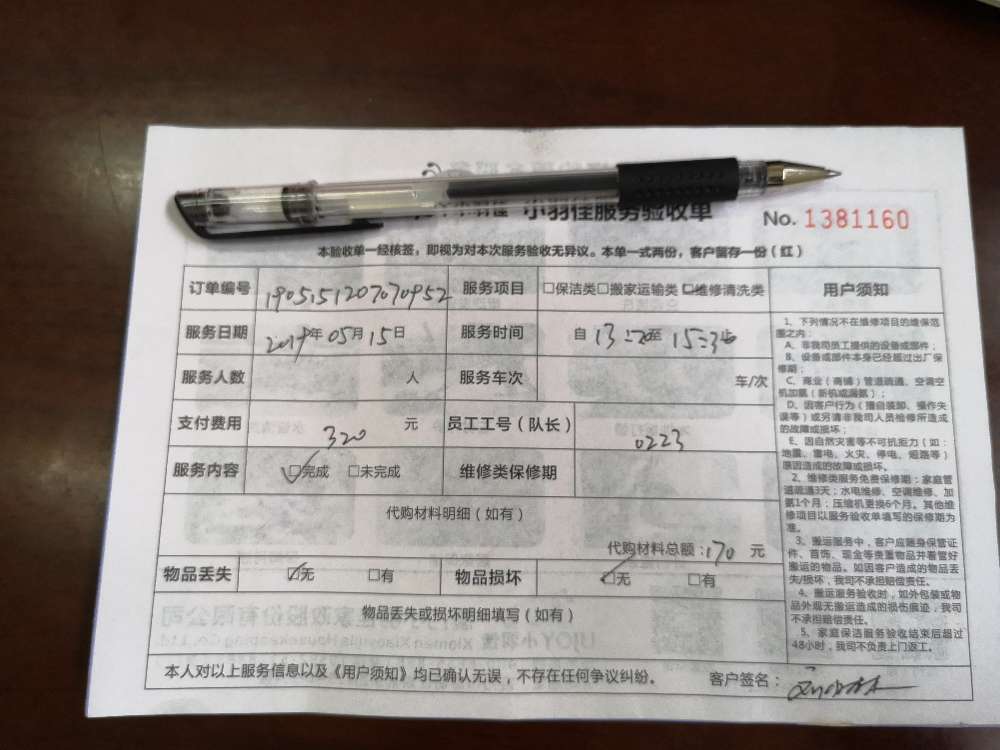 小羽佳服务验收单
No. 1381160
本验收单一经核签，即视为对本次服务验收无异议。本单一式两份，客户留存一份（红）
订单编号 1905151207070952 服务项目 □保洁类□搬家运输类□维修清洗类 用户须知
服务日期 2019年05月15日 服务时间 自 13:20至 15:36
服务人数 人 服务车次 车/次
支付费用 320 元 员工工号（队长） 0223
服务内容 □完成 □未完成 维修类保修期
代购材料明细（如有）
代购材料总额：170 元
物品丢失 □无 □有 物品损坏 □无 □有
物品丢失或损坏明细填写（如有）
本人对以上服务信息以及《用户须知》均已确认无误，不存在任何争议纠纷。 客户签名：
1、下列情况不在维修项目的维保范
围之内：
A、非我司员工提供的设备或部件；
B、设备或部件本身已经超过出厂保
修期；
C、商业（商铺）管道疏通、空调空
机加氟（新机或漏氟）；
D、因客户行为（擅自装卸、操作失
误等）或另请非我司人员检修所造成
的故障或损坏；
E、因自然灾害等不可抗拒力（如：
地震、雷电、火灾、停电、短路等）
原因造成的故障或损坏。
2、维修类服务免费保修期：家庭管
道疏通3天；水电维修、空调维修、加
氟1个月；压缩机更换6个月。其他维
修项目以服务验收单填写的保修期为
准。
3、搬运服务中，客户应随身保管证
件、首饰、现金等贵重物品并看管好
搬运的物品。如因客户造成的物品丢
失/损坏，我司不承担赔偿责任。
4、搬运服务验收时，如外包装或物
品外观无搬运造成的损伤痕迹，我司
不承担赔偿责任。
5、家庭保洁服务验收结束后超过
48小时，我司不负责上门返工。